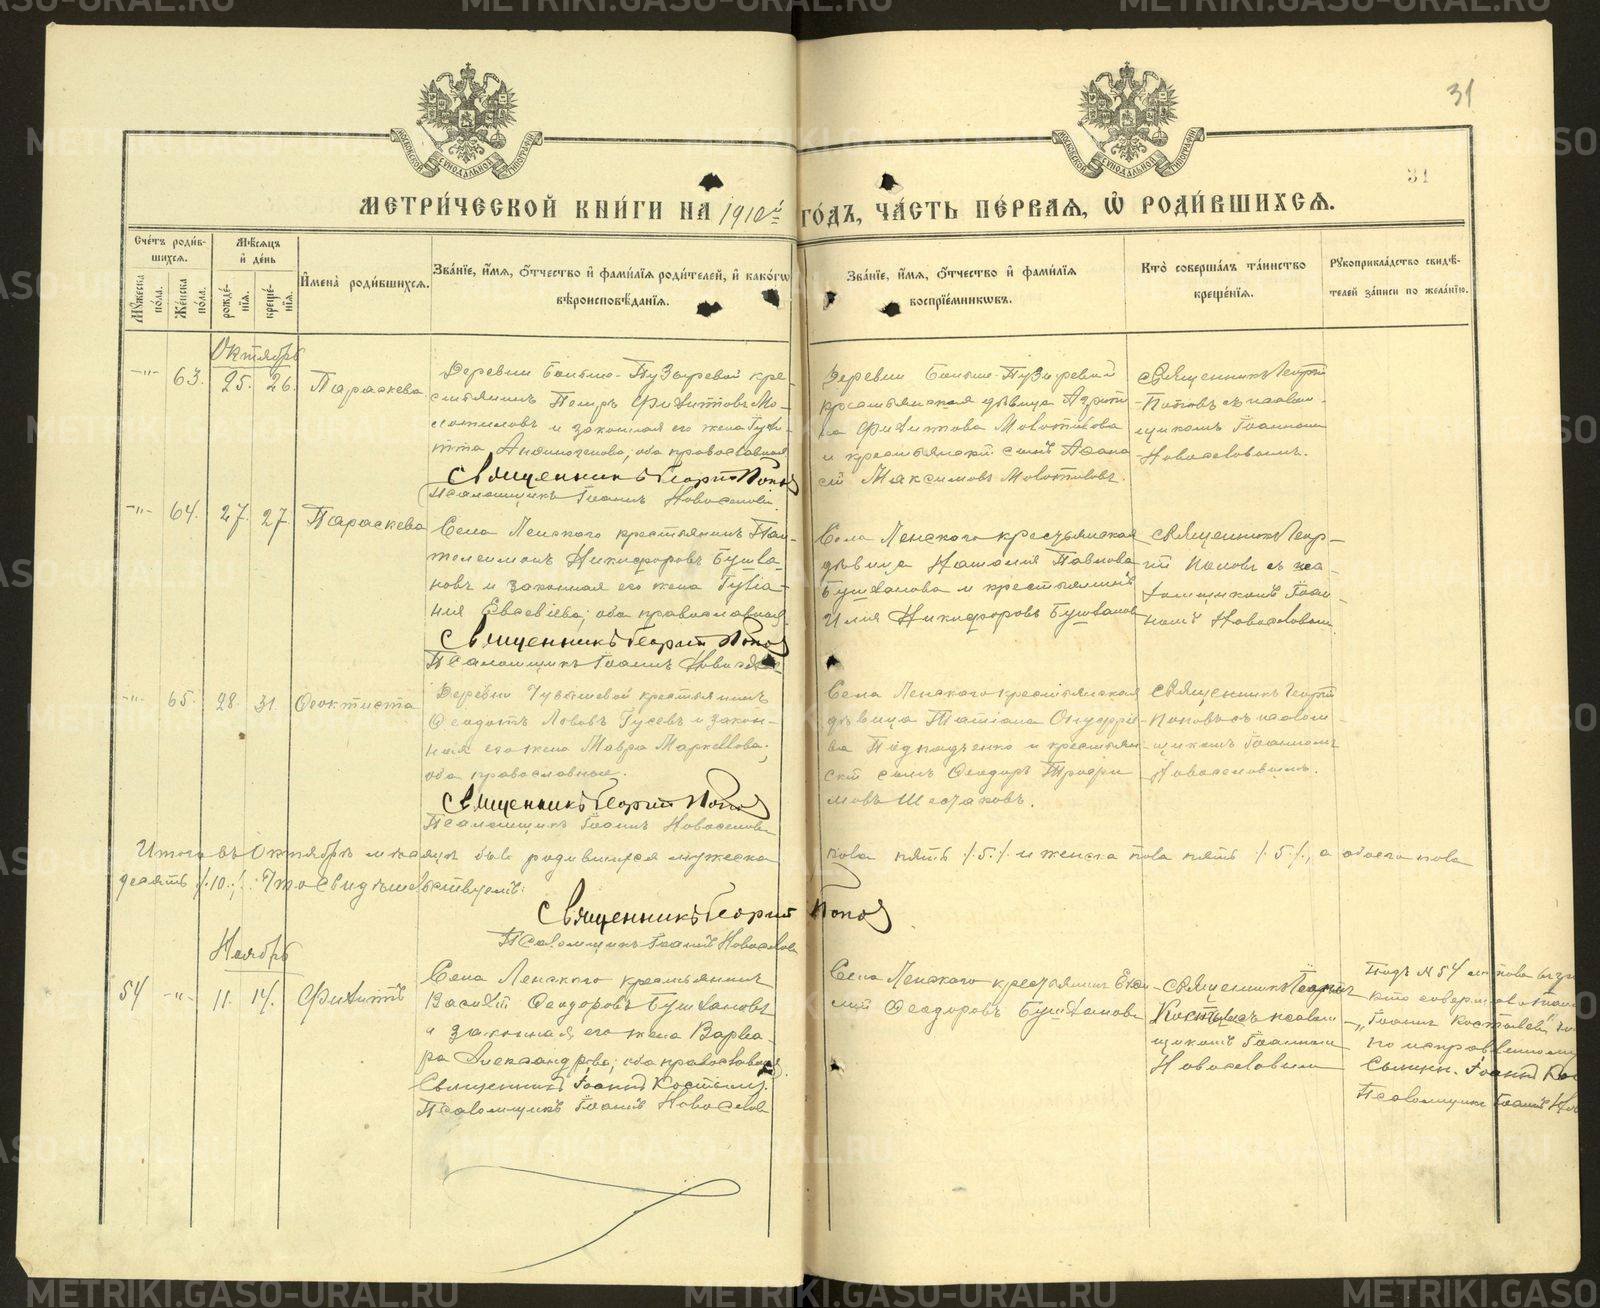 METRIKI.GASO-URAL.RU
31
31
МОСКОВСКОЙ СѴНОДАЛЬНОЙ ТИПОГРАФІИ
МОСКОВСКОЙ СѴНОДАЛЬНОЙ ТИПОГРАФІИ
МЕТРИ́ЧЕСКОЙ КНИ́ГИ НА 1910й ГО́ДЪ, ЧА́СТЬ ПЕ́РВАЯ, Ѡ РОДИ́ВШИХСѦ.
Сче́тъ роди́в-
шихсѧ.
Мѣ́сѧцъ
и҆ де́нь
Мꙋ́жеска
пола.
Же́нска
пола.
рожде́-
нїѧ.
креще́-
нїѧ.
И҆мена̀ роди́вшихсѧ.
Зва́нїе, и҆́мѧ, ѻ҆́тчество и҆ фами́лїѧ роди́телей, и҆ како́гѡ
вѣроисповѣ́данїѧ.
Зва́нїе, и҆́мѧ, ѻ҆́тчество и҆ фами́лїѧ
воспрїе́мникѡвъ.
Кто̀ соверша́лъ та́инство
креще́нїѧ.
Рꙋкоприкла́дство свидѣ́-
телей за́писи по жела́нїю.
Октябрь
-"- 63. 25. 26. Параскева
Деревни Больше-Пузыревой кре-
стьянинъ Петръ Филитовъ Мо-
лотиловъ и законная его жена
оба православные
Священникъ Георгій Поповъ
Псаломщикъ Іоаннъ Новоселовъ
Деревни Больше-Пузыревой
крестьянская дѣвица
Филитова
и крестьянскій сынъ
Максимовъ
Священникъ Георгій
Поповъ съ псалом-
щикомъ Іоанномъ
Новоселовымъ.
-"- 64. 27. 27. Параскева
Села Ленского крестьянинъ Пан-
телеимонъ Никифоровъ Бушла-
новъ и законная его жена Гуліа-
нія Евсевіева, оба православные
Священникъ Георгій Поповъ
Псаломщикъ Іоаннъ Новоселовъ
Села Ленского крестьянская
дѣвица Наталія Павлова
Бушланова и крестьянинъ
Илія Никифоровъ Бушлановъ
Священникъ Геор-
гій Поповъ съ пса-
ломщикомъ Іоан-
номъ Новоселовымъ
-"- 65. 28. 31. Ѳеоктиста
Деревни Чувашевой крестьянинъ
Ѳеодотъ Гусевъ и закон-
ная его жена Мавра Маркеллова;
оба православные.
Священникъ Георгій Поповъ
Псаломщикъ Іоаннъ Новоселовъ
Села Ленского крестьянская
дѣвица Татіана Онуфріе-
ва и крестьян-
скій сынъ Ѳеодоръ Трофи-
мовъ Шестаковъ.
Священникъ Георгій
Поповъ съ псалом-
щикомъ Іоанномъ
Новоселовымъ.
Итого въ Октябрѣ мѣсяцѣ было родившихся мужеска пола пять /5./ и женска пола пять /5./, а обоего пола
десять /10./. Что свидѣтельствуемъ:
Священникъ Георгій Поповъ
Псаломщикъ Іоаннъ Новоселовъ
Ноябрь
54 -"- 11. 14. Филитъ
Села Ленского крестьянинъ
Василій Ѳеодоровъ Бушлановъ
и законная его жена Варва-
ра Александрова; оба православные.
Священникъ Іоаннъ Костылевъ.
Псаломщикъ Іоаннъ Новоселовъ
Села Ленского крестьянинъ
Ѳеодоровъ Бушлановъ
Священникъ
съ псалом-
щикомъ Іоанномъ
Новоселовымъ
Подъ №54
кто совершалъ
„Іоаннъ Костылевъ"
по исправленному
Священ. Іоаннъ
Псаломщикъ Іоаннъ